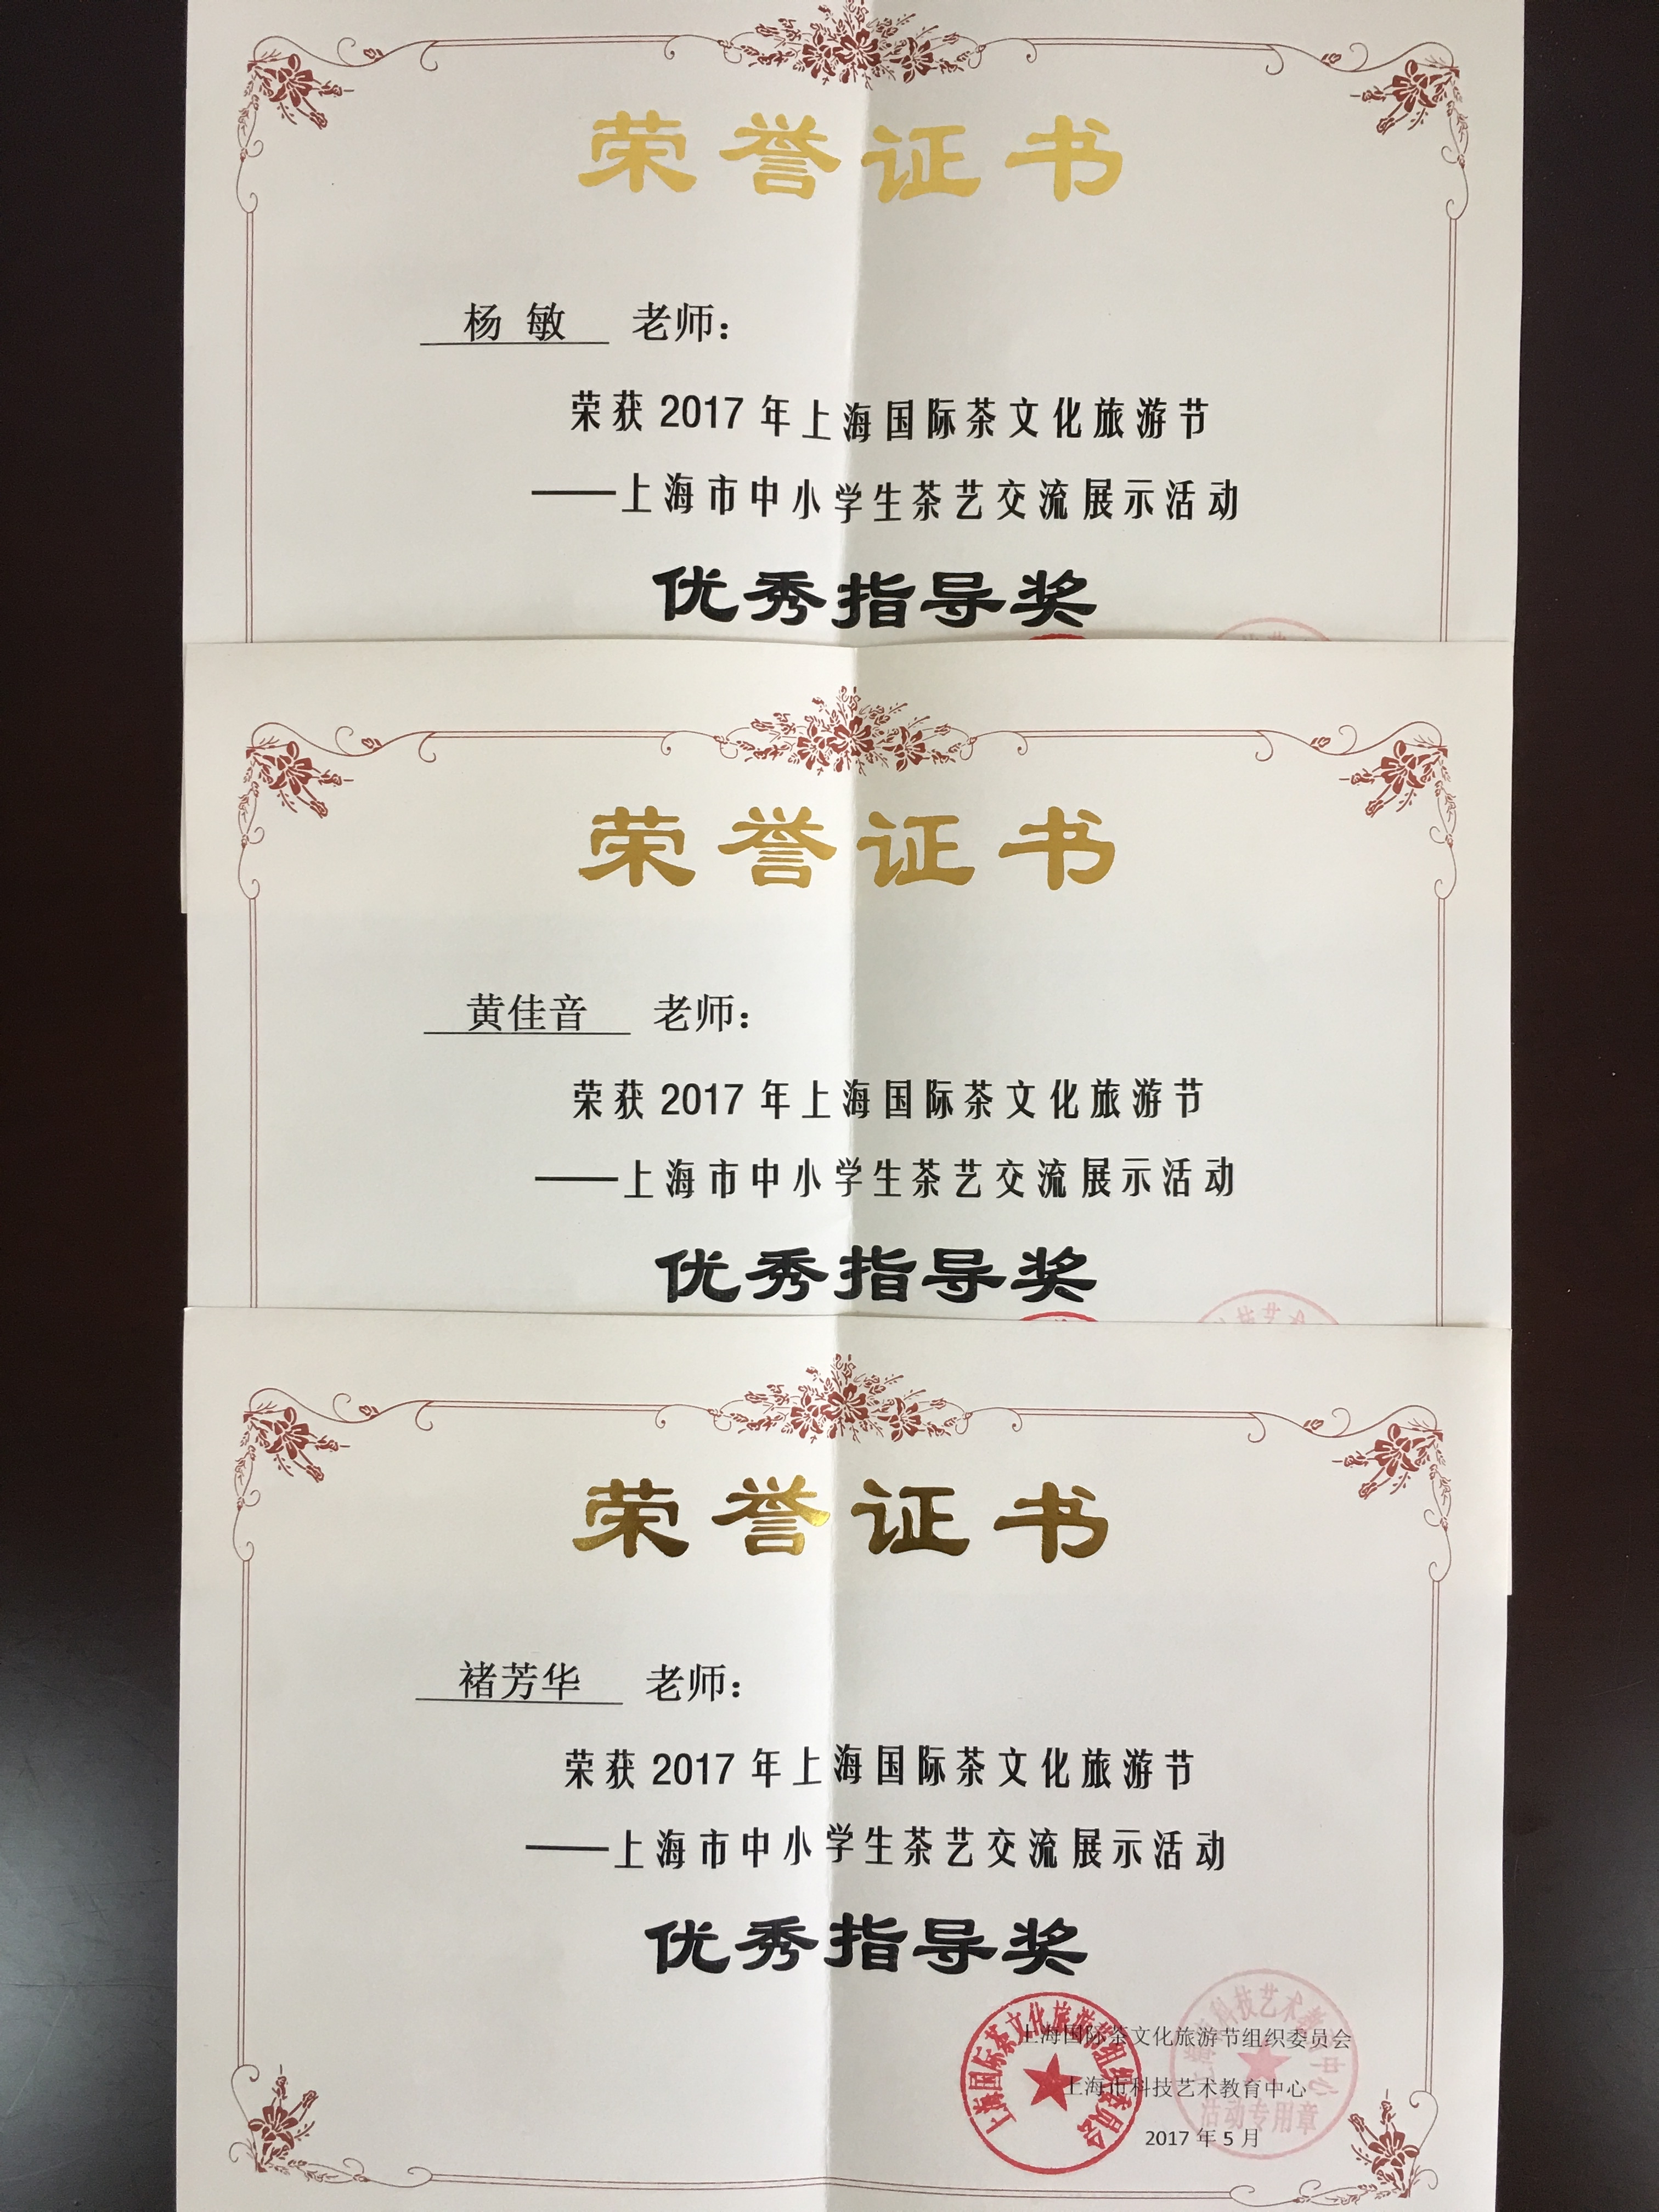 荣誉证书
杨 敏 老师：
荣获2017年上海国际茶文化旅游节
——上海市中小学生茶艺交流展示活动
优秀指导奖
荣誉证书
黄佳音 老师：
荣获2017年上海国际茶文化旅游节
——上海市中小学生茶艺交流展示活动
优秀指导奖
科技艺术
荣誉证书
褚芳华 老师：
荣获2017年上海国际茶文化旅游节
——上海市中小学生茶艺交流展示活动
优秀指导奖
上海国际茶文化旅游节组织委员会
上海市科技艺术教育中心
2017年5月
上海国际茶文化旅游节组织委员会
科技艺术教育中心
活动专用章